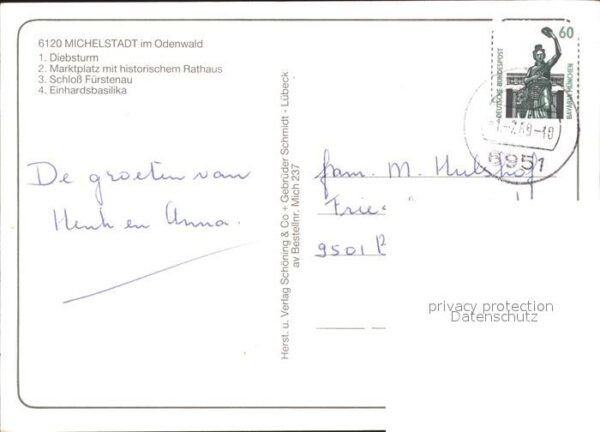 6120 MICHELSTADT im Odenwald
1. Diebsturm
2. Marktplatz mit historischem Rathaus
3. Schloß Fürstenau
4. Einhardsbasilika
De groeten van
Henk en Anna.
Herst. u. Verlag Schöning & Co + Gebrüder Schmidt - Lübeck
av Bestellnr. Mich 237
60
DEUTSCHE BUNDESPOST
BAVARIA MÜNCHEN
5951
fam. M. Hulshof
Frie
9501
privacy protection
Datenschutz